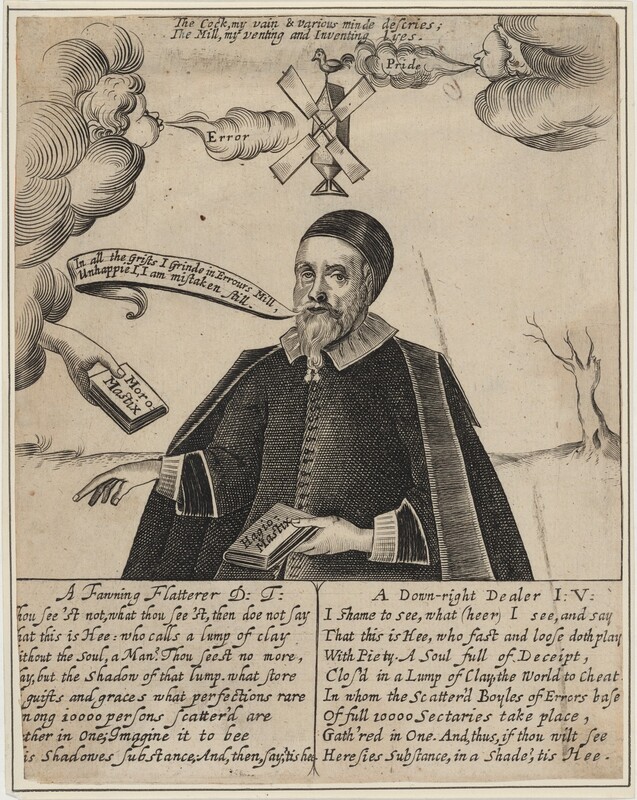 The Cock, my vain & various minde descries;
The Mill, my venting and Inventing Lyes.
Pride
Error
In all the Grists I Grinde in Errours Mill,
Unhappie I, I am mistaken still.
Moro
Mastix
Hagio
Mastix
A Fawning Flatterer D: T:
hou see'st not, what thou see'st, then doe not say
hat this is Hee: who calls a lump of clay
ithout the Soul, a Man? Thou seest no more,
ay, but the Shadow of that lump. what store
guifts and graces what perfections rare
mong 10000 persons scatter'd are
ther in One; Imagine it to bee
is Shadowes substance; And, then, say, 'tis hee
A Down-right Dealer I: V:
I shame to see, what (heer) I see, and say
That this is Hee, who fast and loose doth play
With Piety. A Soul full of Deceipt,
Clos'd in a Lump of Clay, the World to Cheat.
In whom the Scatter'd Boyles of Errors base
Of full 10000 Sectaries take place,
Gath'red in One. And, thus, if thou wilt see
Heresies Substance, in a Shade, 'tis Hee.